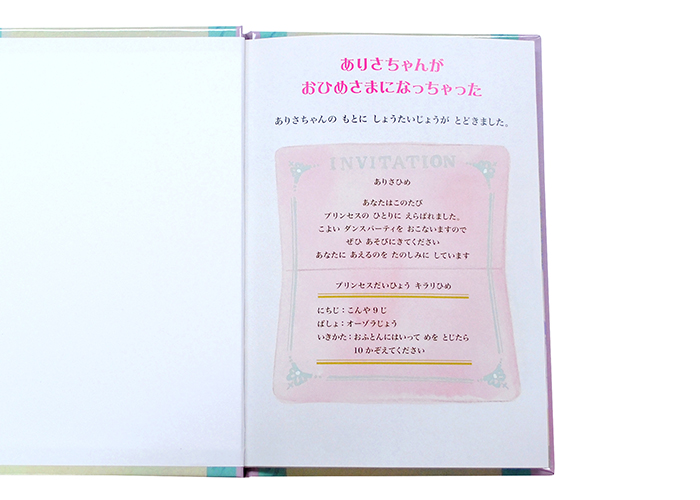 ありさちゃんが
おひめさまになっちゃった
ありさちゃんの もとに しょうたいじょうが とどきました。
INVITATION
ありさひめ
あなたはこのたび
プリンセスの ひとりに えらばれました。
こよい ダンスパーティを おこないますので
ぜひ あそびにきてください
あなたに あえるのを たのしみに しています
プリンセスだいひょう キラリひめ
にちじ：こんや9じ
ばしょ：オーゾラじょう
いきかた：おふとんにはいって めを とじたら
10かぞえてください